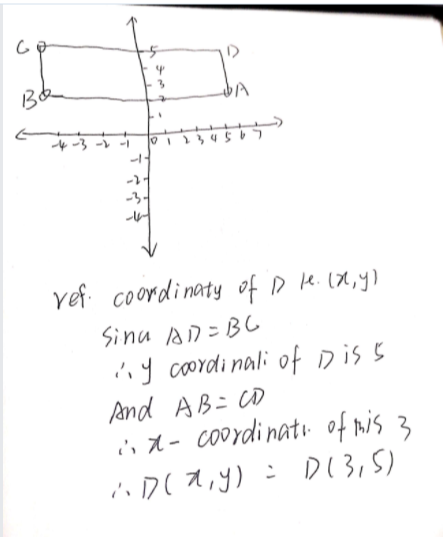 C 5 D
4
3
B 2 A
1
-4 -3 -2 -1 0 1 2 3 4 5 6 7
-1
-2
-3
-4
ref. coordinaty of D be (x,y)
Sinu AD = BC
∴ y coordinali of D is 5
And AB = CD
∴ x- coordinati of this 3
∴ D(x,y) = D(3,5)